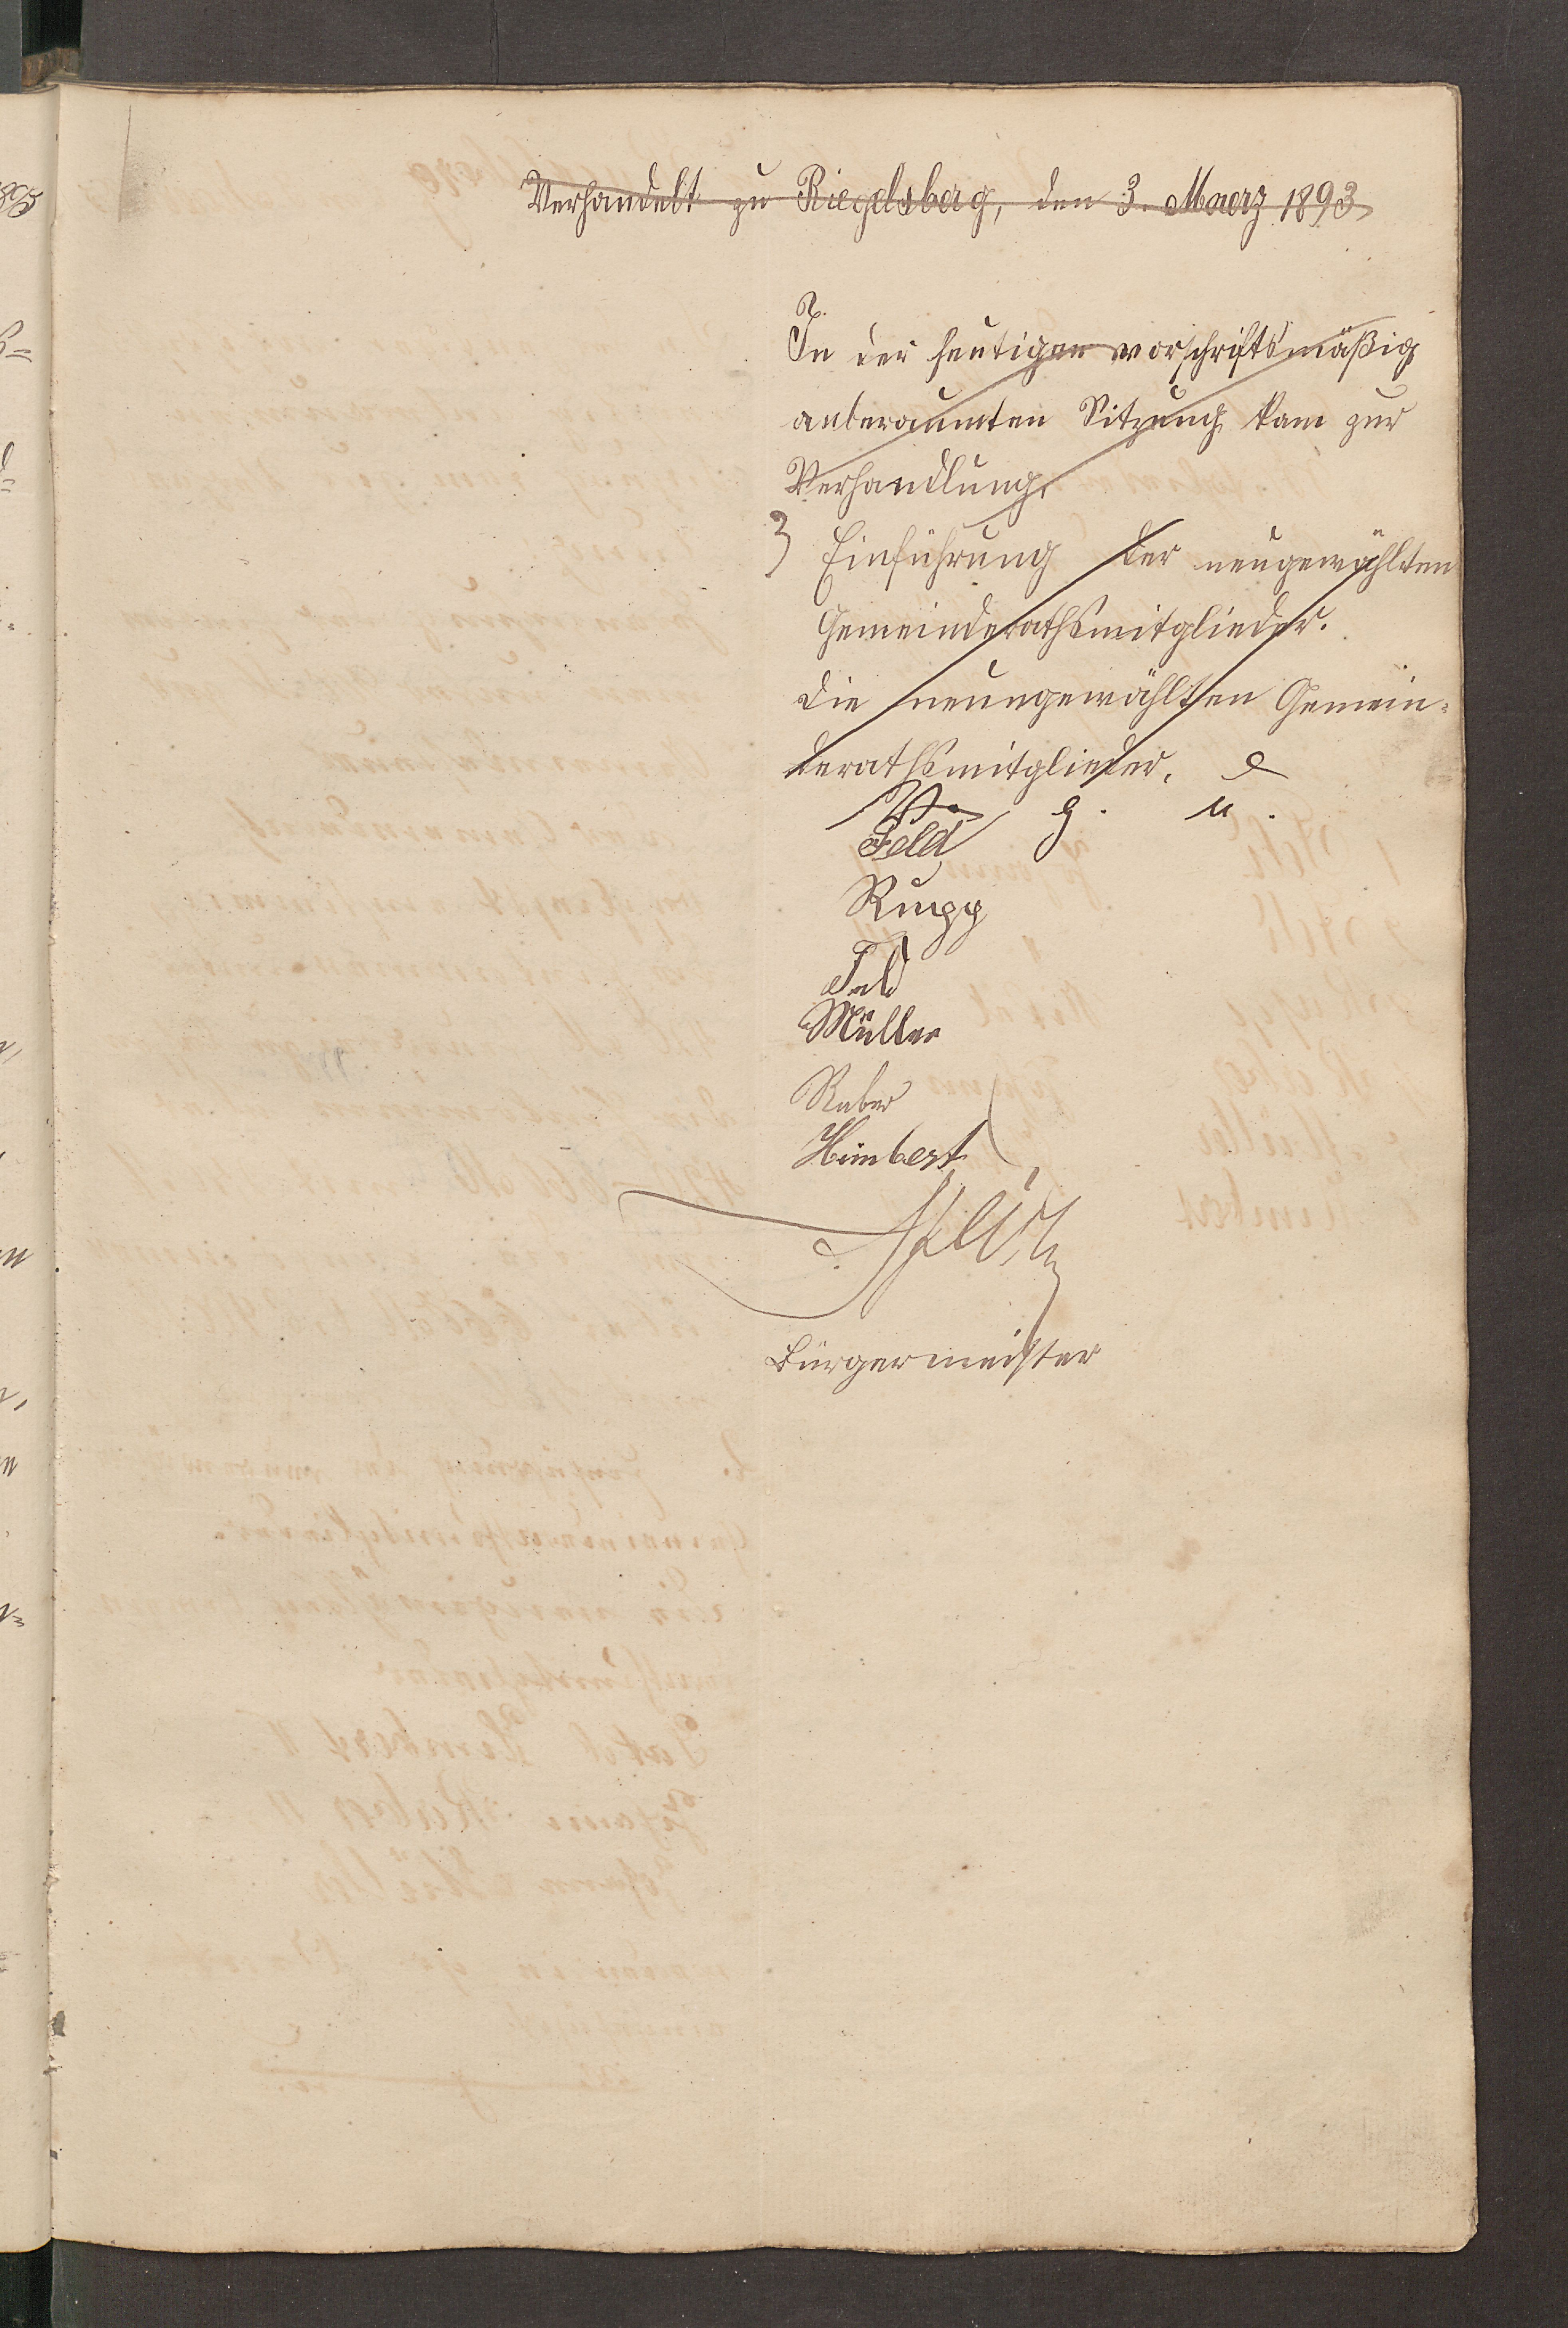 Verhandelt zu Riegelsberg, den 3. Maerz 1893
In der heutigen vorschriftsmäßig
anberaumten Sitzung kam zur
Verhandlung.
Einführung der neugewählten
Gemeinderathsmitglieder.
Die neungewählten Gemein-
derathsmitglieder.
V. g. u.
Feld
Rupp
Feld
Müller
Raber
Himbert
Bürgermeister